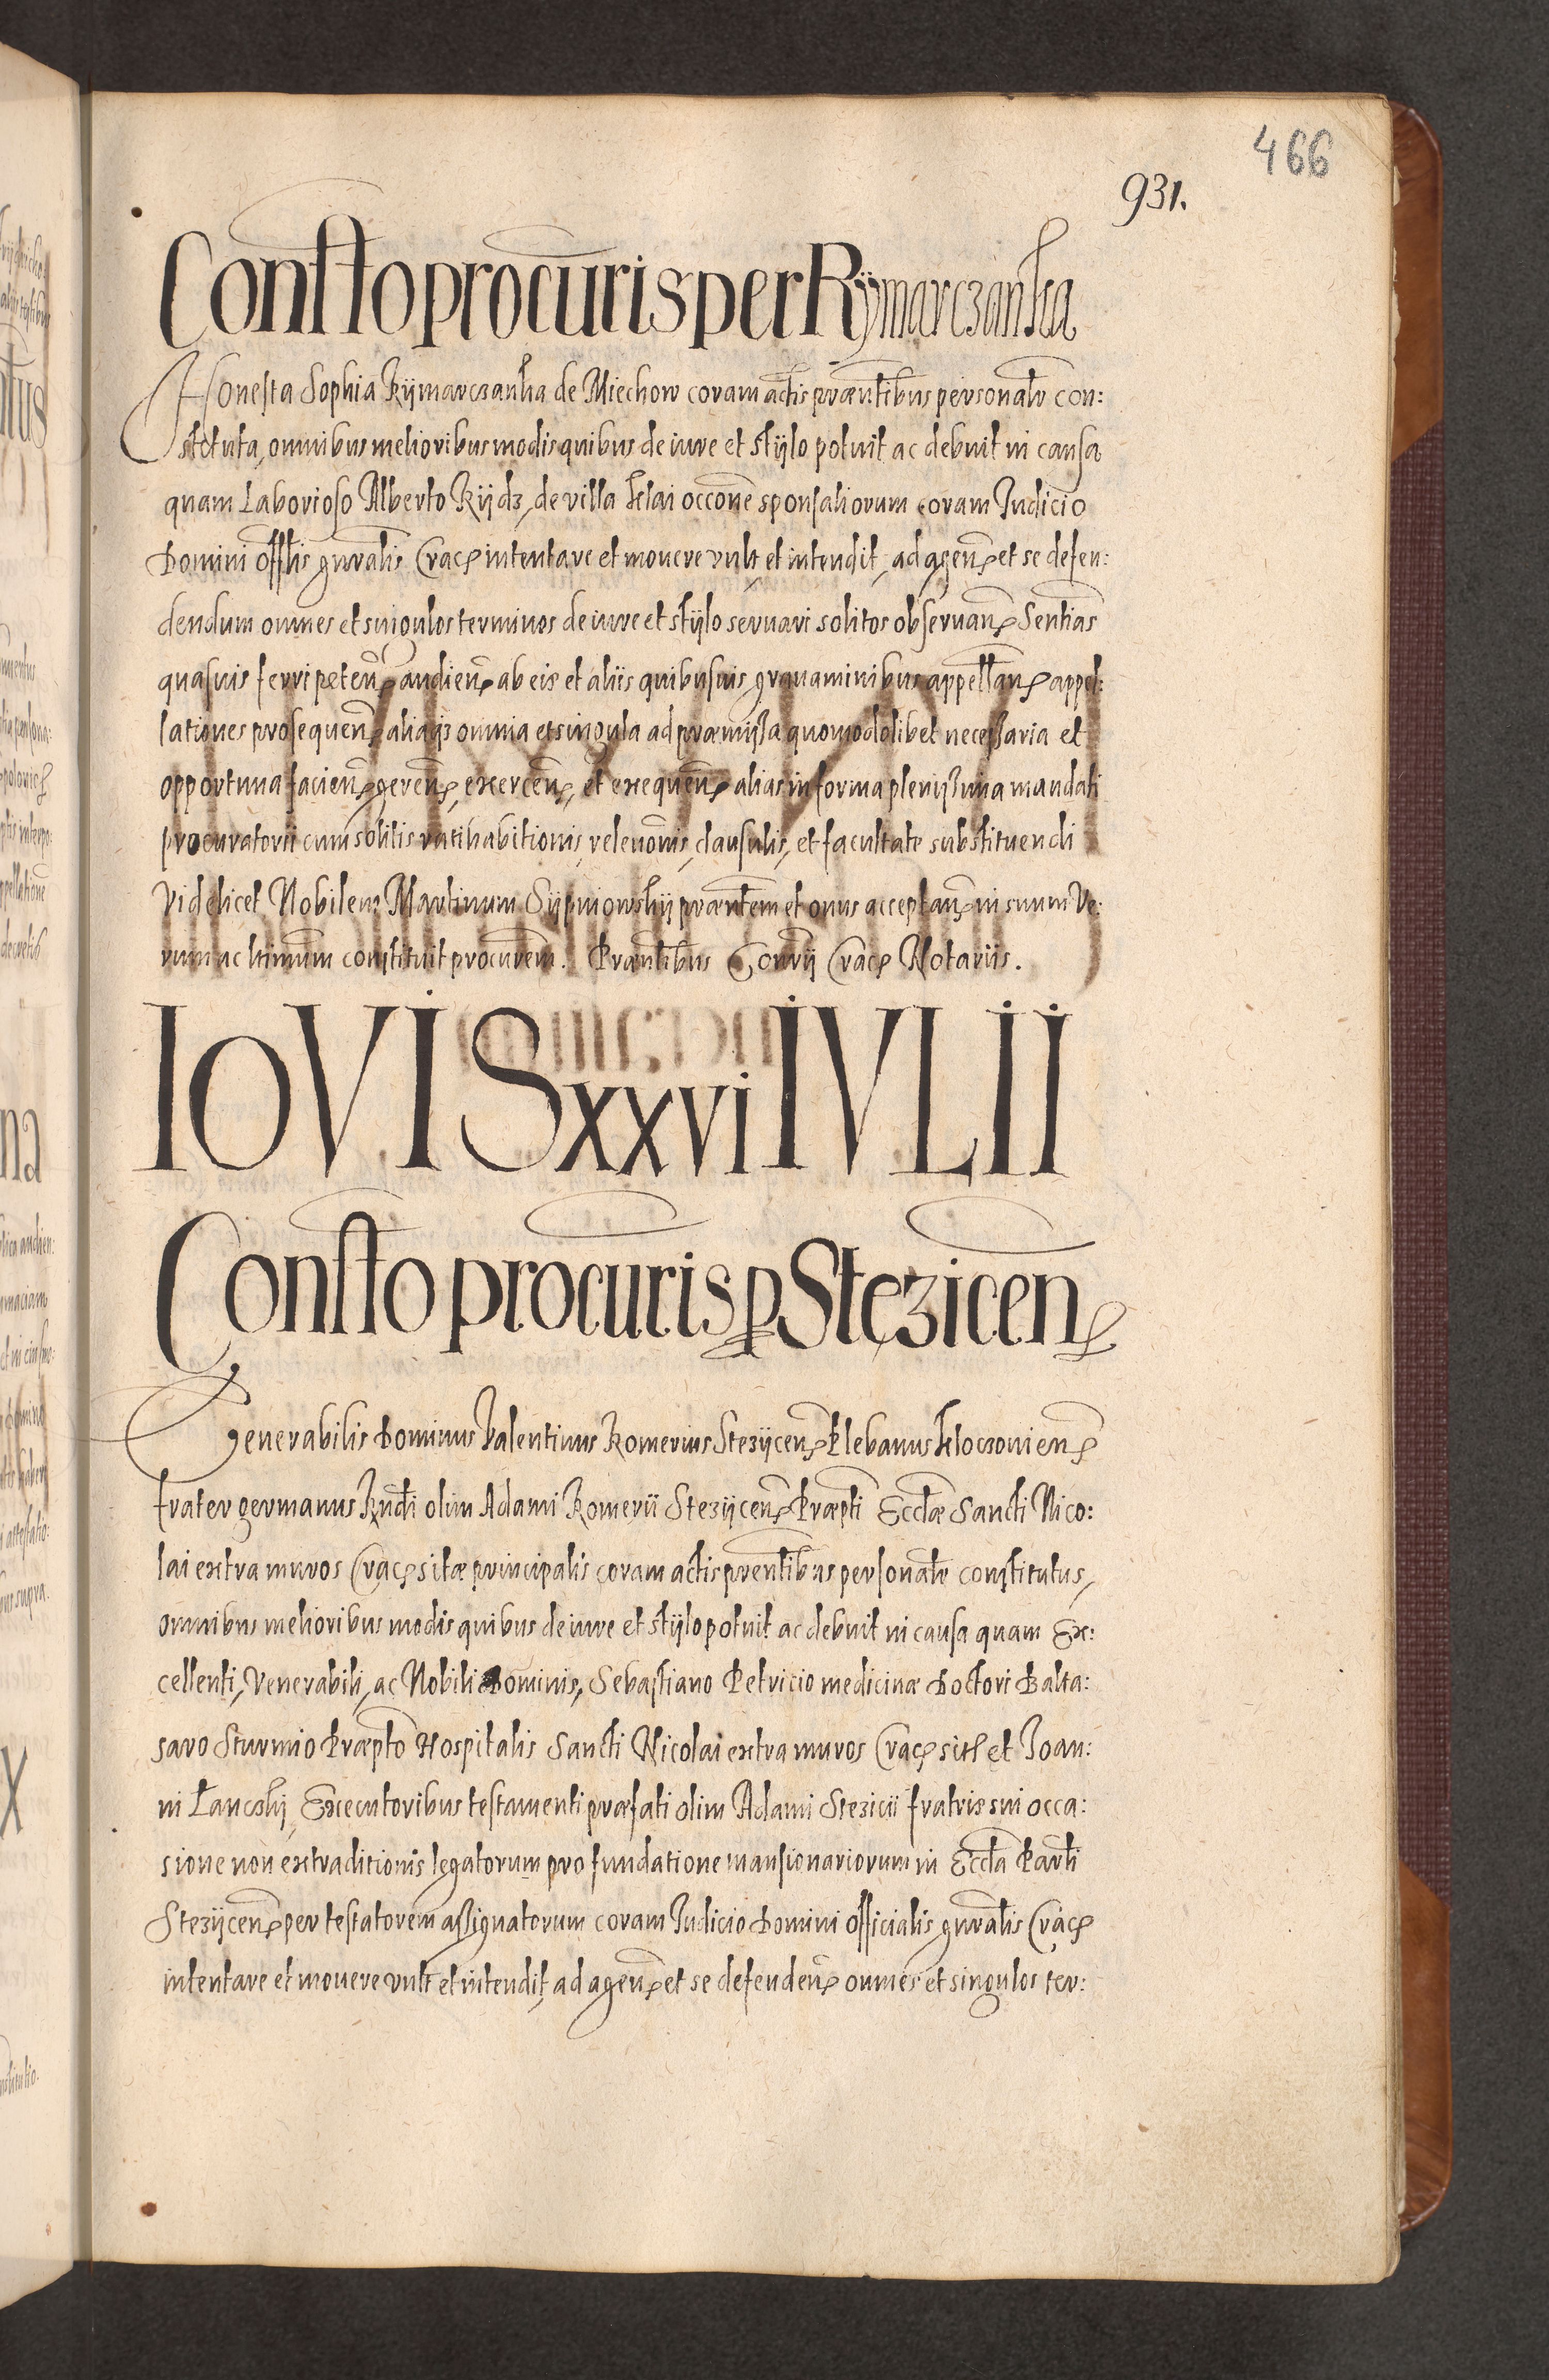 466
931.
Constto procuris per Rÿmarczanka
Honesta Sophia Rÿmarczanka de Miechow coram actis præntibus personalr con:
stituta, omnibus melioribus modis quibus de iure et stÿlo potuit ac debuit in causa
quam Laborioso Alberto Rÿdz, de villa Klai occone sponsaliorum coram Judicio
Domini offlis gnralis Crac intentare et mouere vult et intendit, ad agen et se defen:
dendum omnes et singulos terminos de iure et stÿlo seruari solitos obseruan Sentias
quasuis ferri peten audien ab eis et aliis quibusuis grauaminibus appellan appel:
lationes prosequen aliaqz omnia et singula ad præmissa quomodolibet necessaria et
opportuna facien geren, exercen, et exequen alias in forma plenissima mandati
procuratorii cum solitis ratihabitionis, releuonis, clausulis, et facultate substituendi
Videlicet Nobilem Martinum Sÿpniowskÿ præntem et onus acceptan in suum Ve:
rum ac ltimum constituit procurem. Præntibus Conrÿ Crac Notariis.
IOVIS XXVI IVLII
Constto procuris p Stezicen
Venerabilis Dominus Valentinus Romerius Stezÿcen Plebanus Kloczouien
frater germanus Rndi olim Adami Romerii Stezÿcen Præpti Ecclæ Sancti Nico:
lai extra muros Crac sitæ principalis coram actis prentibus personalr constitutus,
omnibus melioribus modis quibus de iure et stÿlo potuit ac debuit in causa quam Ex:
cellenti, Venerabili, ac Nobili Dominis, Sebastiano Petricio medicinæ Doctori Balta:
saro Sturmio Præpto Hospitalis Sancti Nicolai extra muros Crac sit et Joan:
ni Lancskÿ, Executoribus testamenti præfati olim Adami Stezicii fratris sui occa:
sione non extraditionis legatorum pro fundatione mansionariorum in Eccla Parli
Stezÿcen per testatorem assignatorum coram Judicio Domini officialis gnralis Crac
intentare et mouere vult et intendit, ad agen et se defenden omnes et singulos ter: